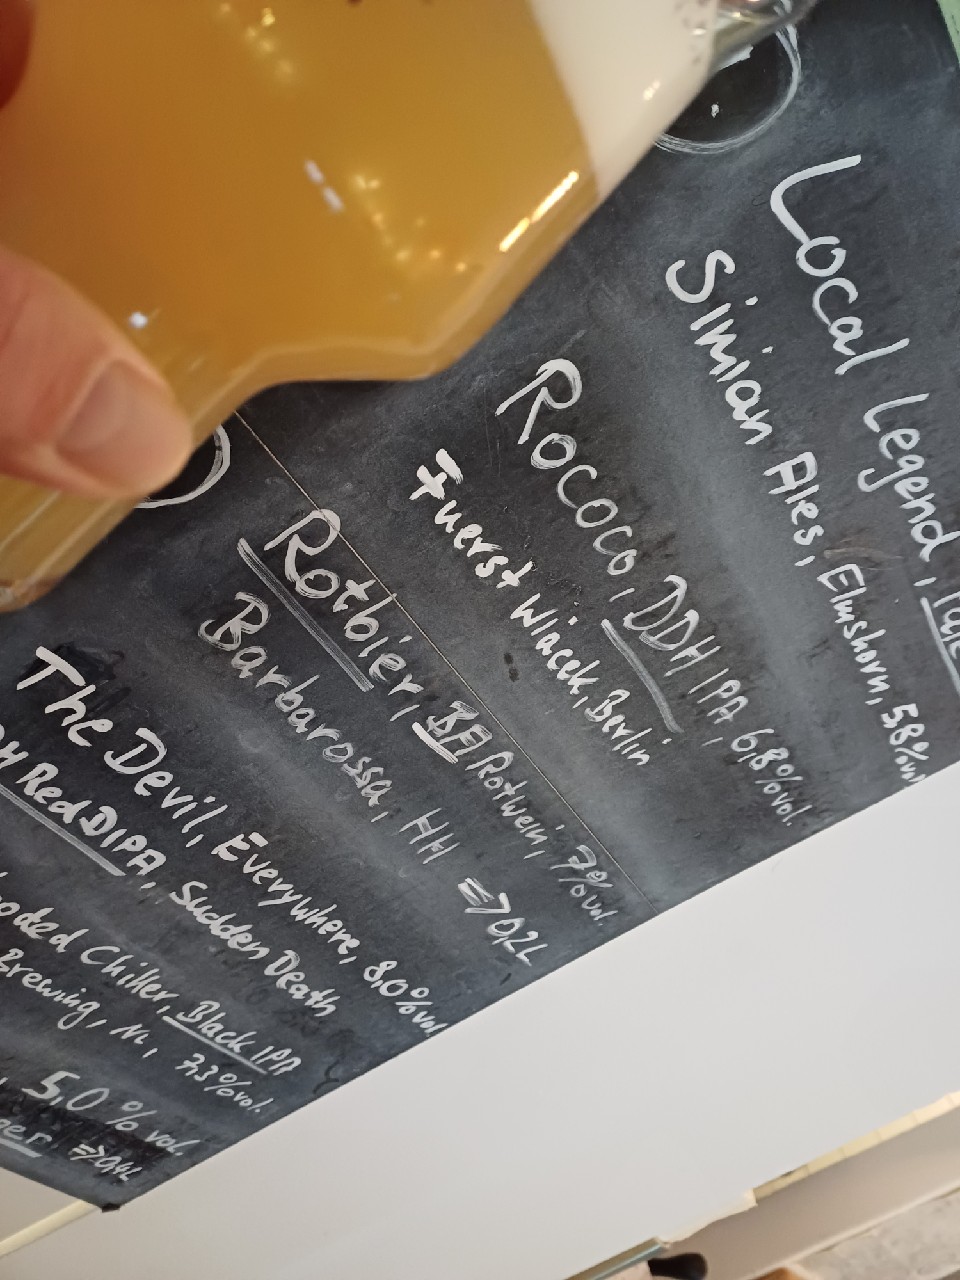 Local Legend,
Simian Ales, Elmshorn, 5,8%vol
Rococo, DDH IPA, 6,8%vol.
Fuerst Wiacek, Berlin
Rotbier, BA Rotwein, 7%vol.
Barbarossa, HH => 0,2L
The Devil, Everywhere, 8,0%vol
Red DIPA, Sudden Death
Chiller, Black IPA
Brewing, NL, 7,3%vol.
5,0 % vol.
=> 0,4L